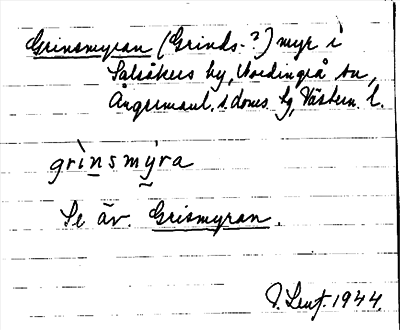 Grinsmyran (Grinds-?) myr i
Salsåkers by, Nordingrå sn,
Ångermanl. s. doms hg, Västern. l.
grìnsmy̌ra
Se äv. Grismyran.
1944.